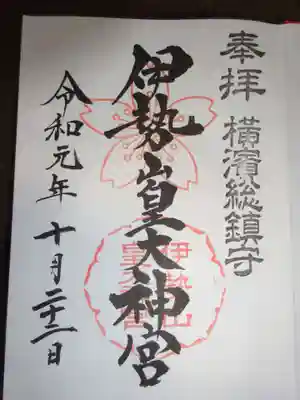 奉拝 横濱総鎮守
伊勢山皇大神宮
令和元年 十月二十二日